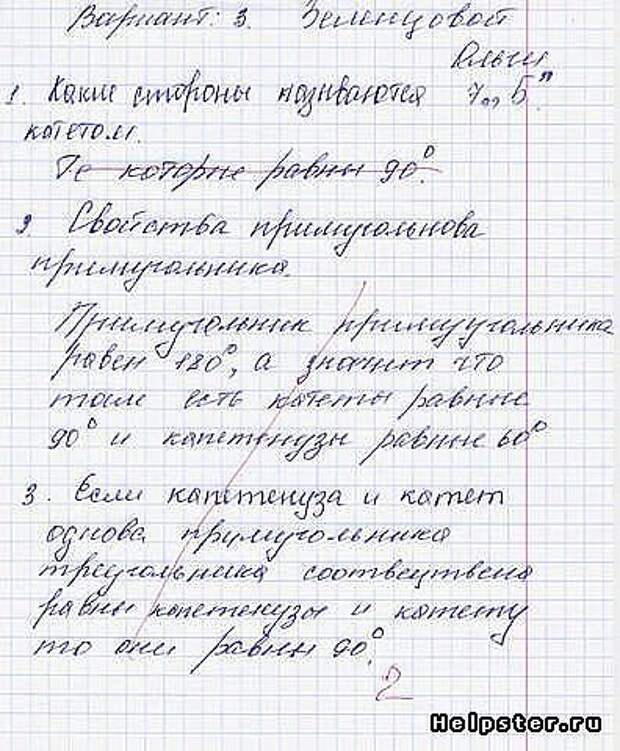 Вариант: 3. Зеленцовой
Ольги
1. Какие стороны называются 7 „Б"
катетом.
Те которые равны 90°.
2. Свойства примугольнова
примугольника.
Примугольник примуугольника
равен 180°, а значит что
там есть катеты равные
90° и капетенузы равные 60°
3. Если капетенуза и катет
однова примугольника
треугольника соотвеутвена
равны капетенузы и катету
то они равны 90°.
2
Helpster.ru